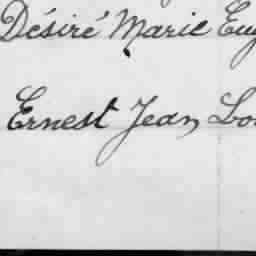 Désiré Marie Eug
Ernest Jean Lo